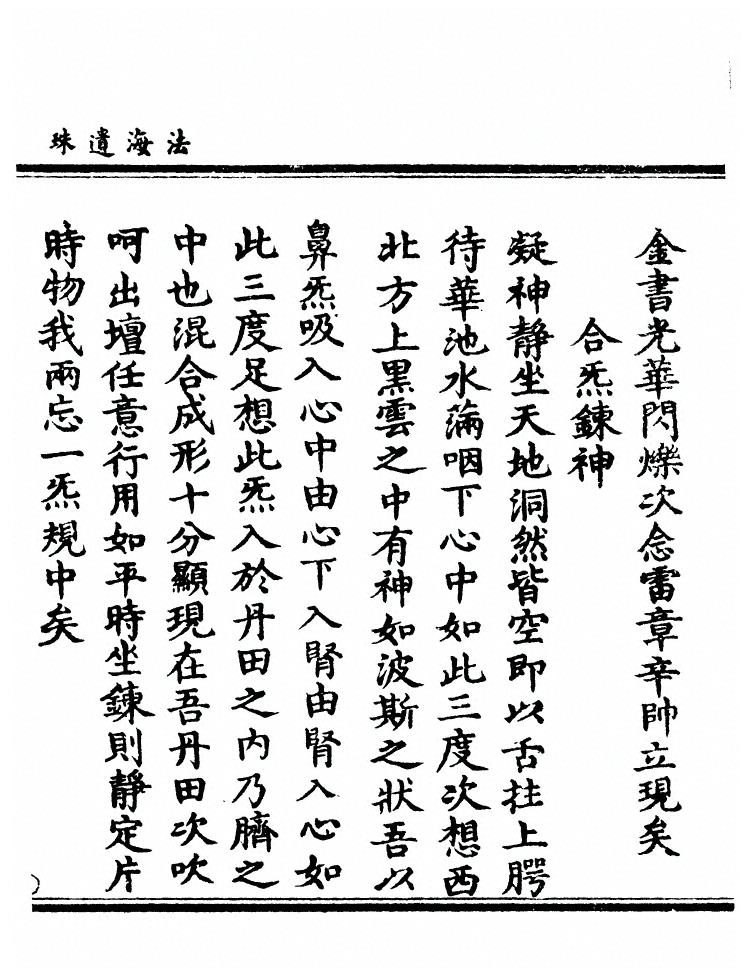 法海遺珠
金書光華閃爍次念雷章辛帥立現矣
合炁鍊神
凝神靜坐天地洞然皆空即以舌拄上腭
待華池水滿咽下心中如此三度次想西
北方上黑雲之中有神如波斯之狀吾以
鼻炁吸入心中由心下入腎由腎入心如
此三度足想此炁入於丹田之內乃臍之
中也混合成形十分顯現在吾丹田次吹
呵出壇任意行用如平時坐鍊則靜定片
時物我兩忘一炁規中矣